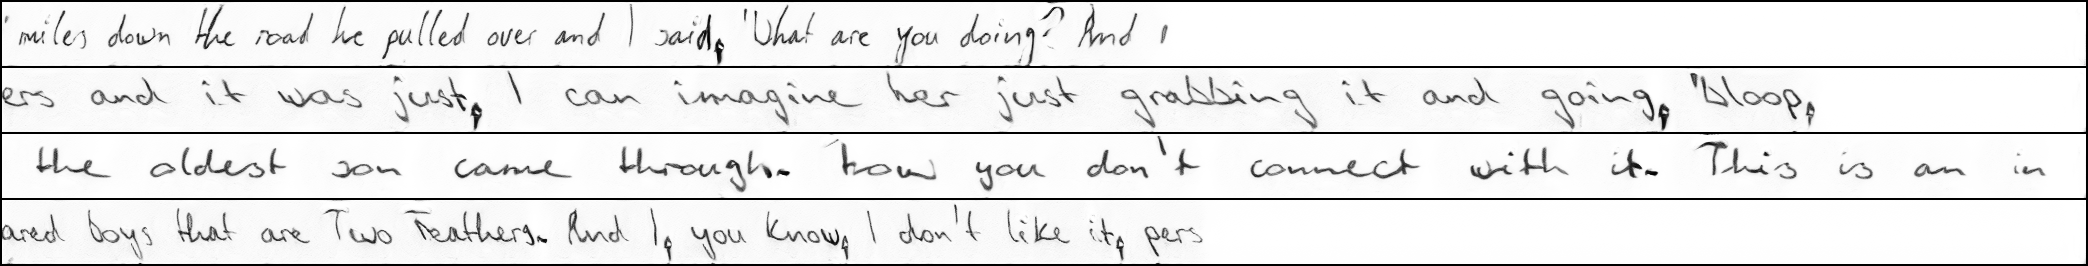 'miles down the road he pulled over and I said, 'What are you doing?' And I
ers and it was just, I can imagine her just grabbing it and going, 'bloop,
the oldest son came through. how you don't connect with it. This is an in
ared boys that are Two Feathers. And I, you know, I don't like it, pers